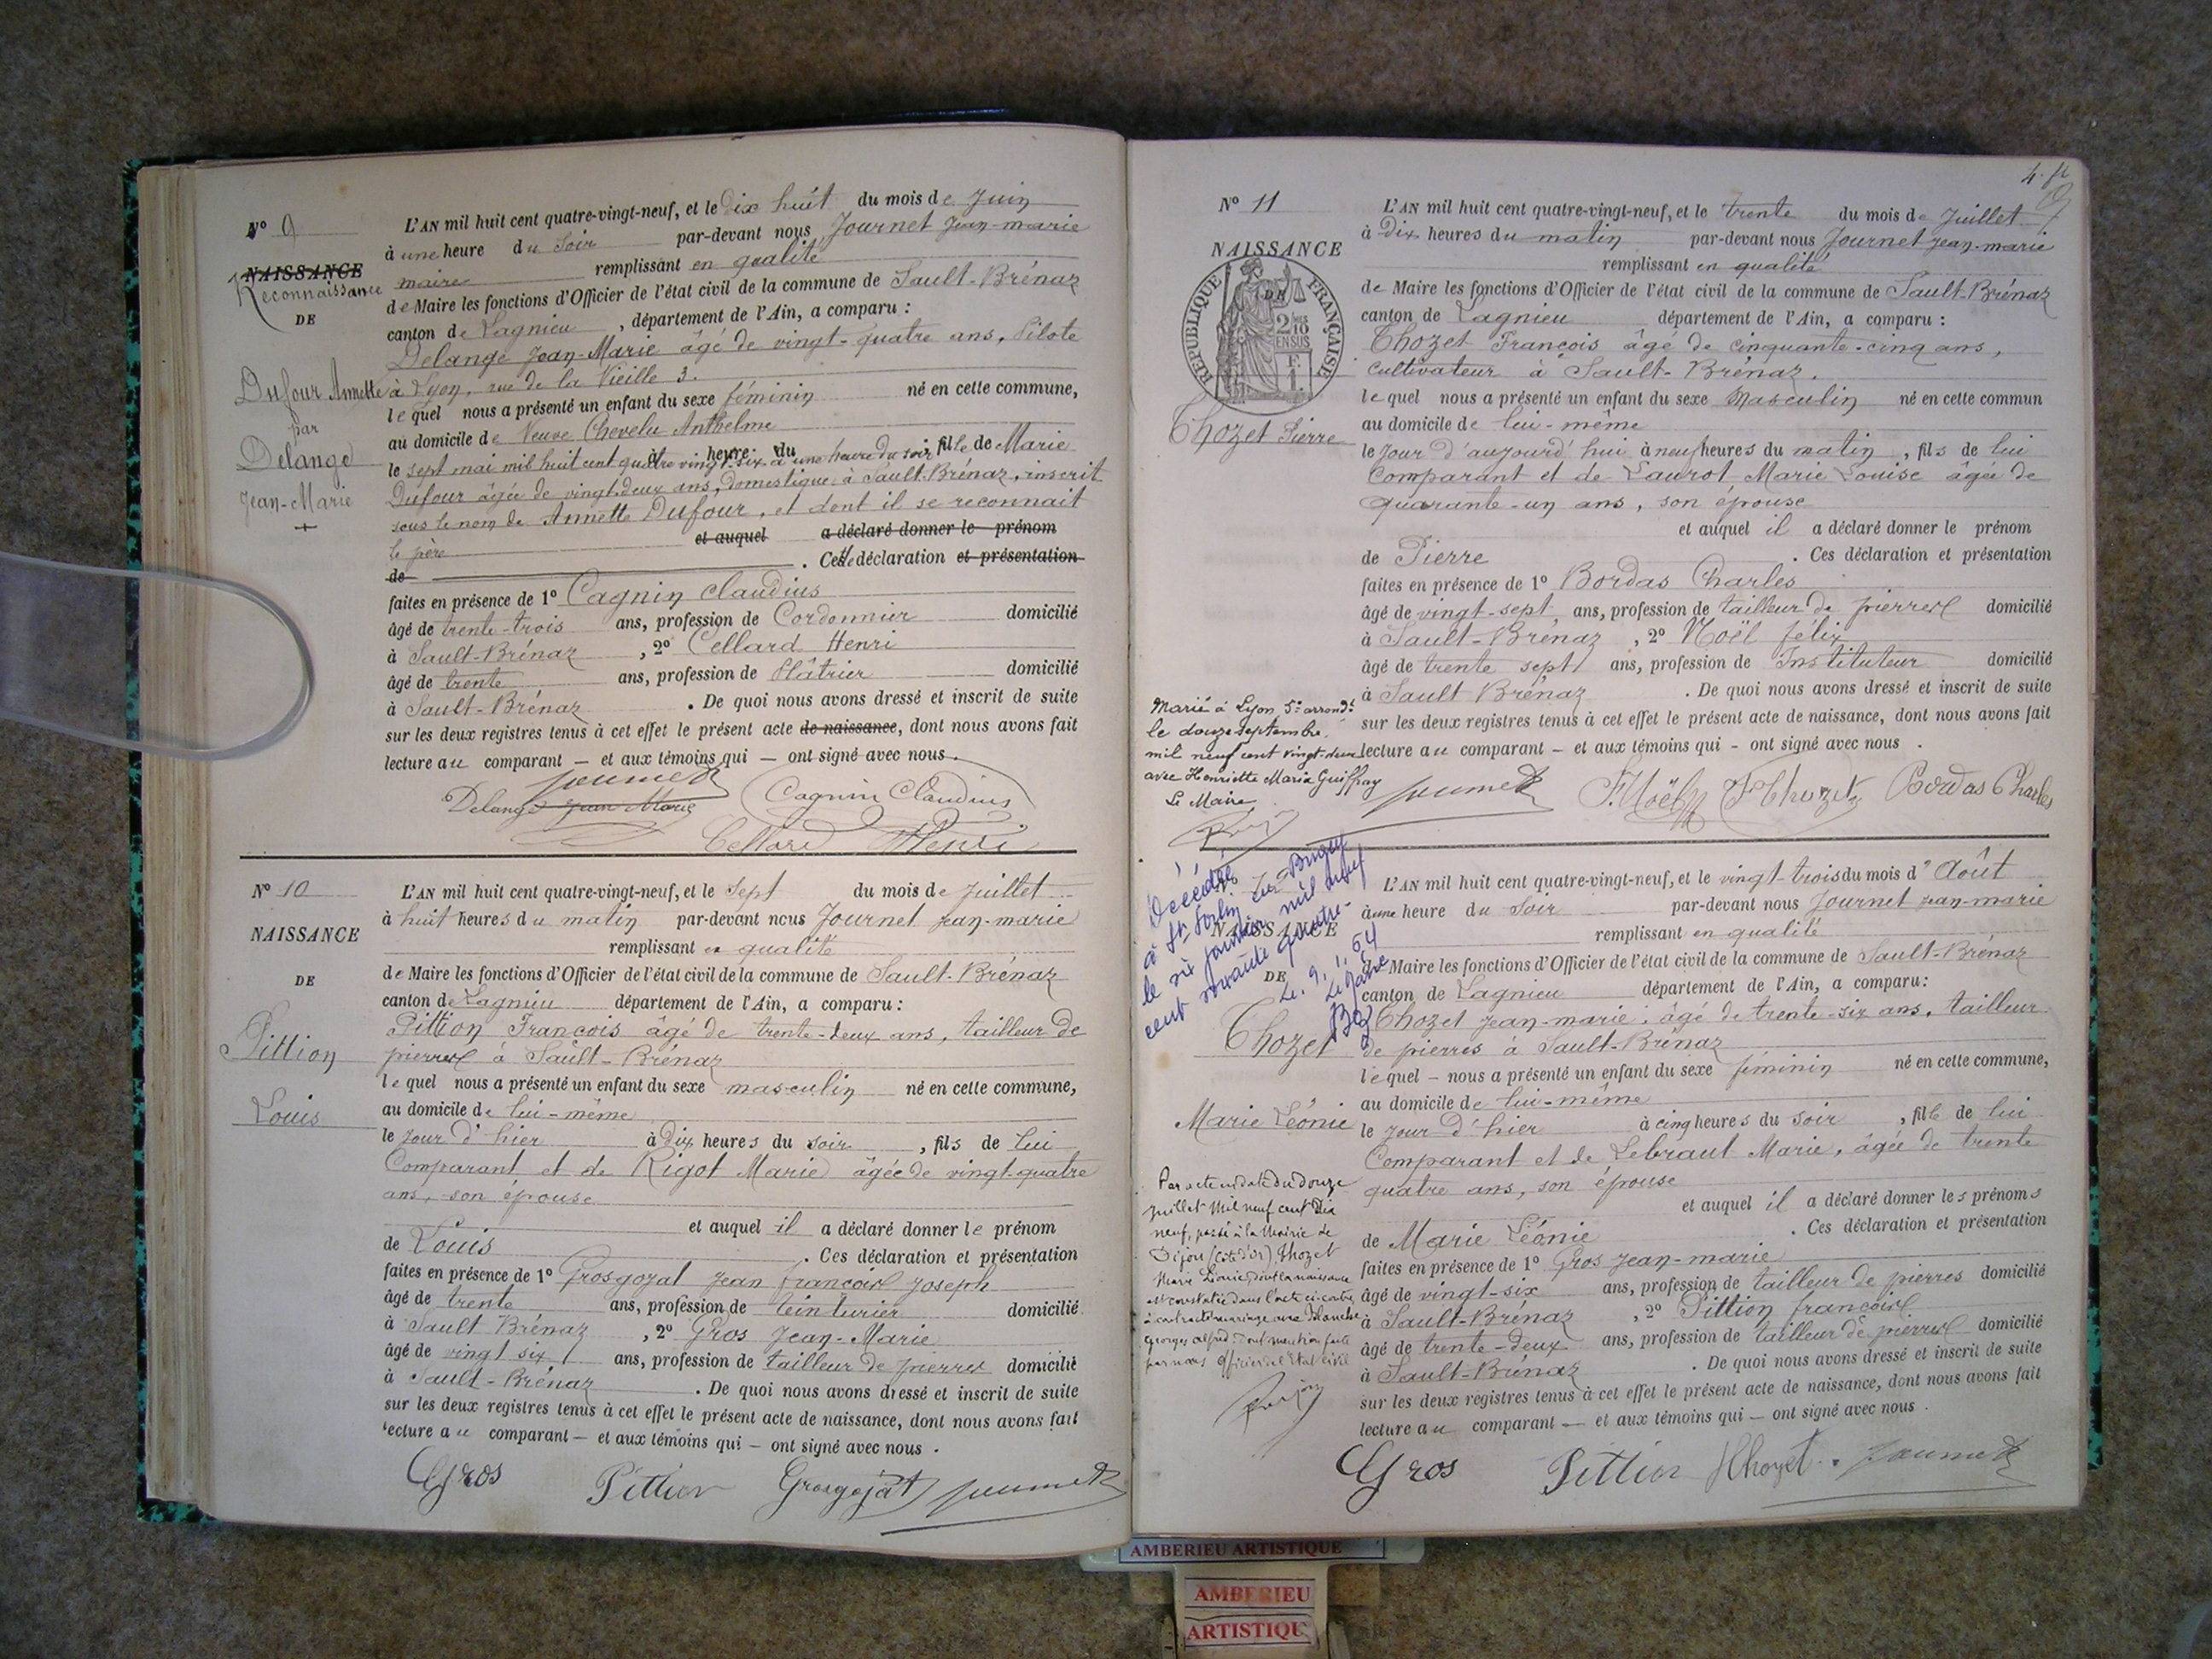 Nº 9
NAISSANCE
Reconnaissance
DE
Dufour Annette
par
Delange
Jean-Marie
L'AN mil huit cent quatre-vingt-neuf, et le dix huit du mois de Juin
à une heure du Soir par-devant nous Journet Jean-marie
maire remplissant en qualité
de Maire les fonctions d'Officier de l'état civil de la commune de Sault-Brénaz
canton de Lagnieu, département de l'Ain, a comparu :
Delange Jean-Marie âgé de vingt-quatre ans, Pilote
à Lyon, rue de la Vieille 3.
lequel nous a présenté un enfant du sexe féminin né en cette commune,
au domicile de Veuve Chevelu Anthelme
à heure du
le sept mai mil huit cent quatre vingt-six à une heure du soir, fille de Marie
Dufour âgée de vingt-deux ans, domestique à Sault-Brénaz, inscrit
sous le nom de Annette Dufour, et dont il se reconnait
le père et auquel a déclaré donner le prénom
de . Cette déclaration et présentation
faites en présence de 1º Cagnin Claudius
âgé de trente-trois ans, profession de Cordonnier domicilié
à Sault-Brénaz, 2º Cellard Henri
âgé de trente ans, profession de Plâtrier domicilié
à Sault-Brénaz. De quoi nous avons dressé et inscrit de suite
sur les deux registres tenus à cet effet le présent acte de naissance, dont nous avons fait
lecture au comparant — et aux témoins qui — ont signé avec nous.
Journet
Delange Jean Marie Cagnin Claudius
Cellard Henri
Nº 10
NAISSANCE
DE
Pittion
Louis
L'AN mil huit cent quatre-vingt-neuf, et le Sept du mois de Juillet
à huit heures du matin par-devant nous Journet Jean-marie
remplissant en qualité
de Maire les fonctions d'Officier de l'état civil de la commune de Sault-Brénaz
canton de Lagnieu département de l'Ain, a comparu :
Pittion François âgé de trente-deux ans, tailleur de
pierres à Sault-Brénaz
lequel nous a présenté un enfant du sexe masculin né en cette commune,
au domicile de lui-même
le Jour d'hier à dix heures du soir, fils de lui
Comparant et de Rigot Marie âgée de vingt-quatre
ans, son épouse
et auquel il a déclaré donner le prénom
de Louis . Ces déclaration et présentation
faites en présence de 1º Grosgojat Jean François Joseph
âgé de trente ans, profession de teinturier domicilié
à Sault Brénaz, 2º Gros Jean-Marie
âgé de vingt six ans, profession de tailleur de pierres domicilié
à Sault-Brénaz. De quoi nous avons dressé et inscrit de suite
sur les deux registres tenus à cet effet le présent acte de naissance, dont nous avons fait
lecture au comparant — et aux témoins qui — ont signé avec nous .
Gros Pittion Grosgojat Journet
Nº 11
NAISSANCE
DE
RÉPUBLIQUE FRANÇAISE
2/10 EN SUS
Thozet Pierre
Marié à Lyon 5e arrondt
le douze septembre
mil neuf cent vingt-deux
avec Henriette Maria Guiffray
Le Maire
L'AN mil huit cent quatre-vingt-neuf, et le trente du mois de Juillet
à Dix heures du matin par-devant nous Journet Jean-marie
remplissant en qualité
de Maire les fonctions d'Officier de l'état civil de la commune de Sault-Brénaz
canton de Lagnieu département de l'Ain, a comparu :
Thozet François âgé de cinquante-cinq ans,
Cultivateur à Sault-Brénaz.
lequel nous a présenté un enfant du sexe Masculin né en cette commun
au domicile de lui-même
le Jour d'aujourd'hui à neuf heures du matin, fils de lui
Comparant et de Laurot Marie Louise âgée de
quarante-un ans, son épouse
et auquel il a déclaré donner le prénom
de Pierre . Ces déclaration et présentation
faites en présence de 1º Bordas Charles
âgé de vingt-sept ans, profession de tailleur de pierres domicilié
à Sault-Brénaz, 2º Noël félix
âgé de trente sept ans, profession de Instituteur domicilié
à Sault Brénaz. De quoi nous avons dressé et inscrit de suite
sur les deux registres tenus à cet effet le présent acte de naissance, dont nous avons fait
lecture au comparant — et aux témoins qui - ont signé avec nous .
Journet F. Noël F Thozet Bordas Charles
Décédé
à St Sorlin en Bugey
le six janvier mil neuf
cent soixante quatre-
Le 9.1.64
Le Maire
NAISSANCE
DE
Thozet
Marie Léonie
Par acte en date du douze
Juillet Mil neuf cent dix
neuf, passé à la Mairie de
Dijon (Côte d'Or), Thozet
Marie Léonie, dont la naissance
est constatée dans l'acte ci-contre
a contracté mariage avec Blanche
Georges Alfred, dont mention faite
par nous Officier de l'Etat Civil
L'AN mil huit cent quatre-vingt-neuf, et le vingt-trois du mois d'Août
à une heure du Soir par-devant nous Journet Jean-marie
remplissant en qualité
de Maire les fonctions d'Officier de l'état civil de la commune de Sault-Brénaz
canton de Lagnieu département de l'Ain, a comparu:
Thozet Jean-marie, âgé de trente-six ans, tailleur
de pierres à Sault-Brénaz
lequel — nous a présenté un enfant du sexe féminin né en cette commune,
au domicile de lui-même
le Jour d'hier à cinq heures du soir, fille de lui
Comparant et de Lebraut Marie, âgée de trente
quatre ans, son épouse
et auquel il a déclaré donner les prénoms
de Marie Léonie . Ces déclaration et présentation
faites en présence de 1º Gros Jean-marie
âgé de vingt-six ans, profession de tailleur de pierres domicilié
à Sault-Brénaz, 2º Pittion François
âgé de trente-deux ans, profession de tailleur de pierres domicilié
à Sault-Brénaz. De quoi nous avons dressé et inscrit de suite
sur les deux registres tenus à cet effet le présent acte de naissance, dont nous avons fait
lecture au comparant — et aux témoins qui — ont signé avec nous .
Gros Pittion Thozet Journet
AMBERIEU ARTISTIQUE
AMBERIEU
ARTISTIQU